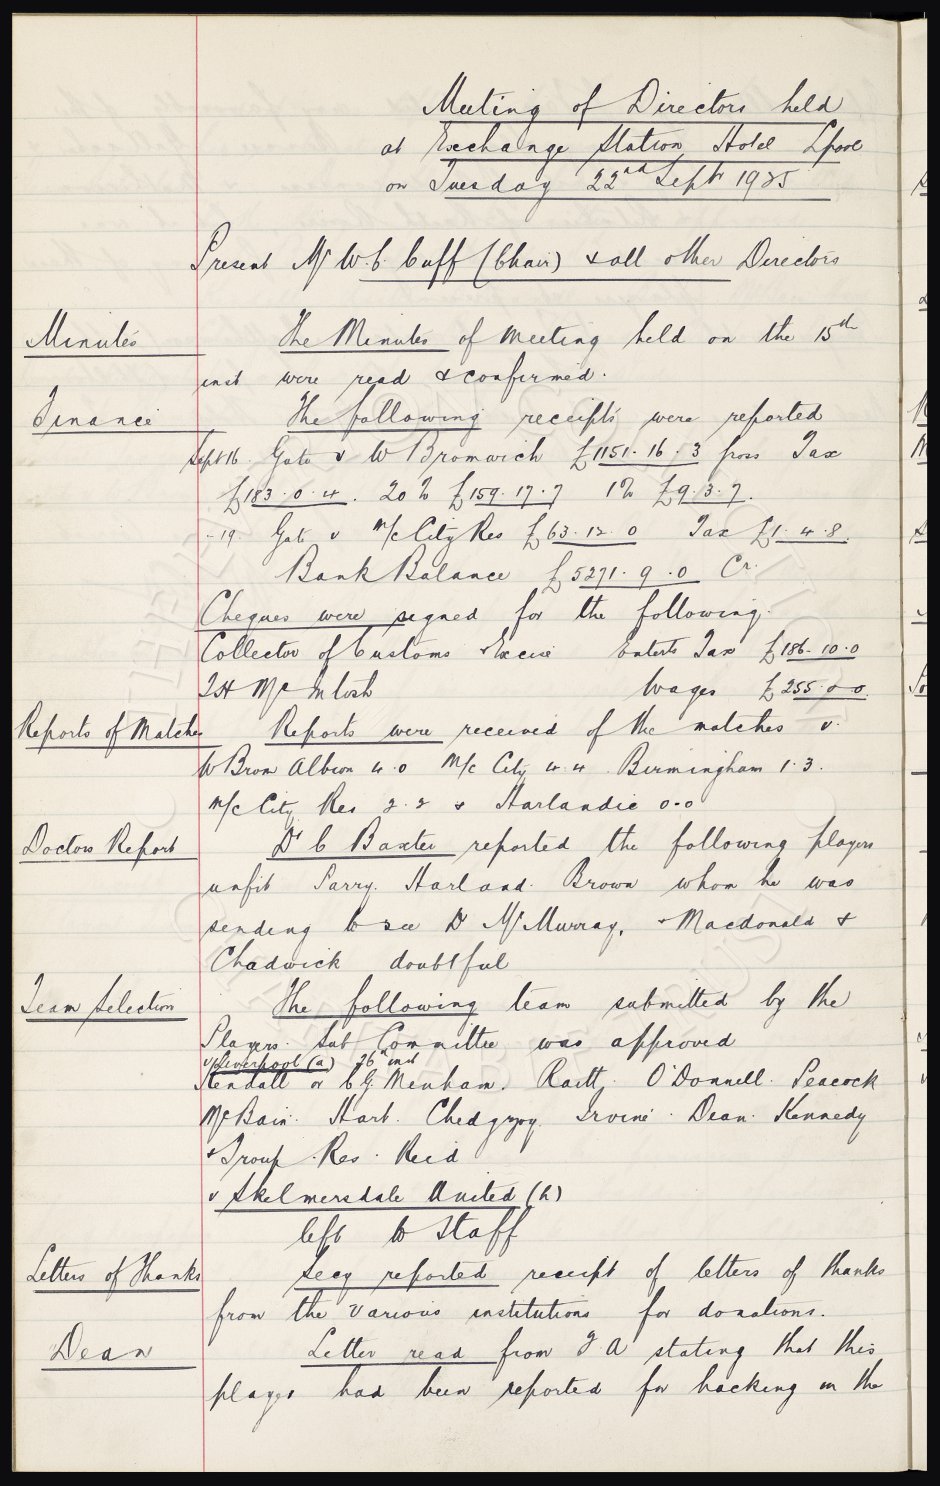 Meeting of Directors held
at Exchange Station Hotel Lpool
on Tuesday 22nd Sept 1925
Present Mr W. C. Cuff (Chair) & all other Directors
Minutes The Minutes of meeting held on the 15th
inst were read & confirmed.
Finance The following receipts were reported
Sept 16 Gate v W Bromwich £1151. 16. 3 gross Tax
£183. 0. 4. 20% £159. 17. 7 1% £9. 3. 7.
- 19. Gate v M/c City Res £63. 12. 0 Tax £1. 4. 8.
Bank Balance £5271. 9. 0 Cr.
Cheques were signed for the following.
Collector of Customs & Excise Enterts Tax £186. 10. 0
T H McIntosh Wages £255. 0 0.
Reports of Matches Reports were received of the matches v.
W Brom Albion 4. 0 M/c City 4. 4. Birmingham 1. 3.
M/c City Res 2. 2 & Harlandic 0-0
Doctors Report Dr C Baxter reported the following players
unfit Parry. Harland. Brown whom he was
sending to see Dr McMurray, & Macdonald &
Chadwick doubtful
Team Selection The following team submitted by the
Players Sub Committee was approved
v Liverpool (a) 26th inst
Kendall or C G. Menham. Raitt. O'Donnell. Peacock
McBain. Hart. Chedgzoy. Irvine. Dean. Kennedy
& Troup. Res. Reid
v Skelmersdale United (h)
left to Staff
Letters of Thanks Secy reported receipt of letters of thanks
from the various institutions for donations.
Dean Letter read from F A stating that this
player had been reported for hacking in the